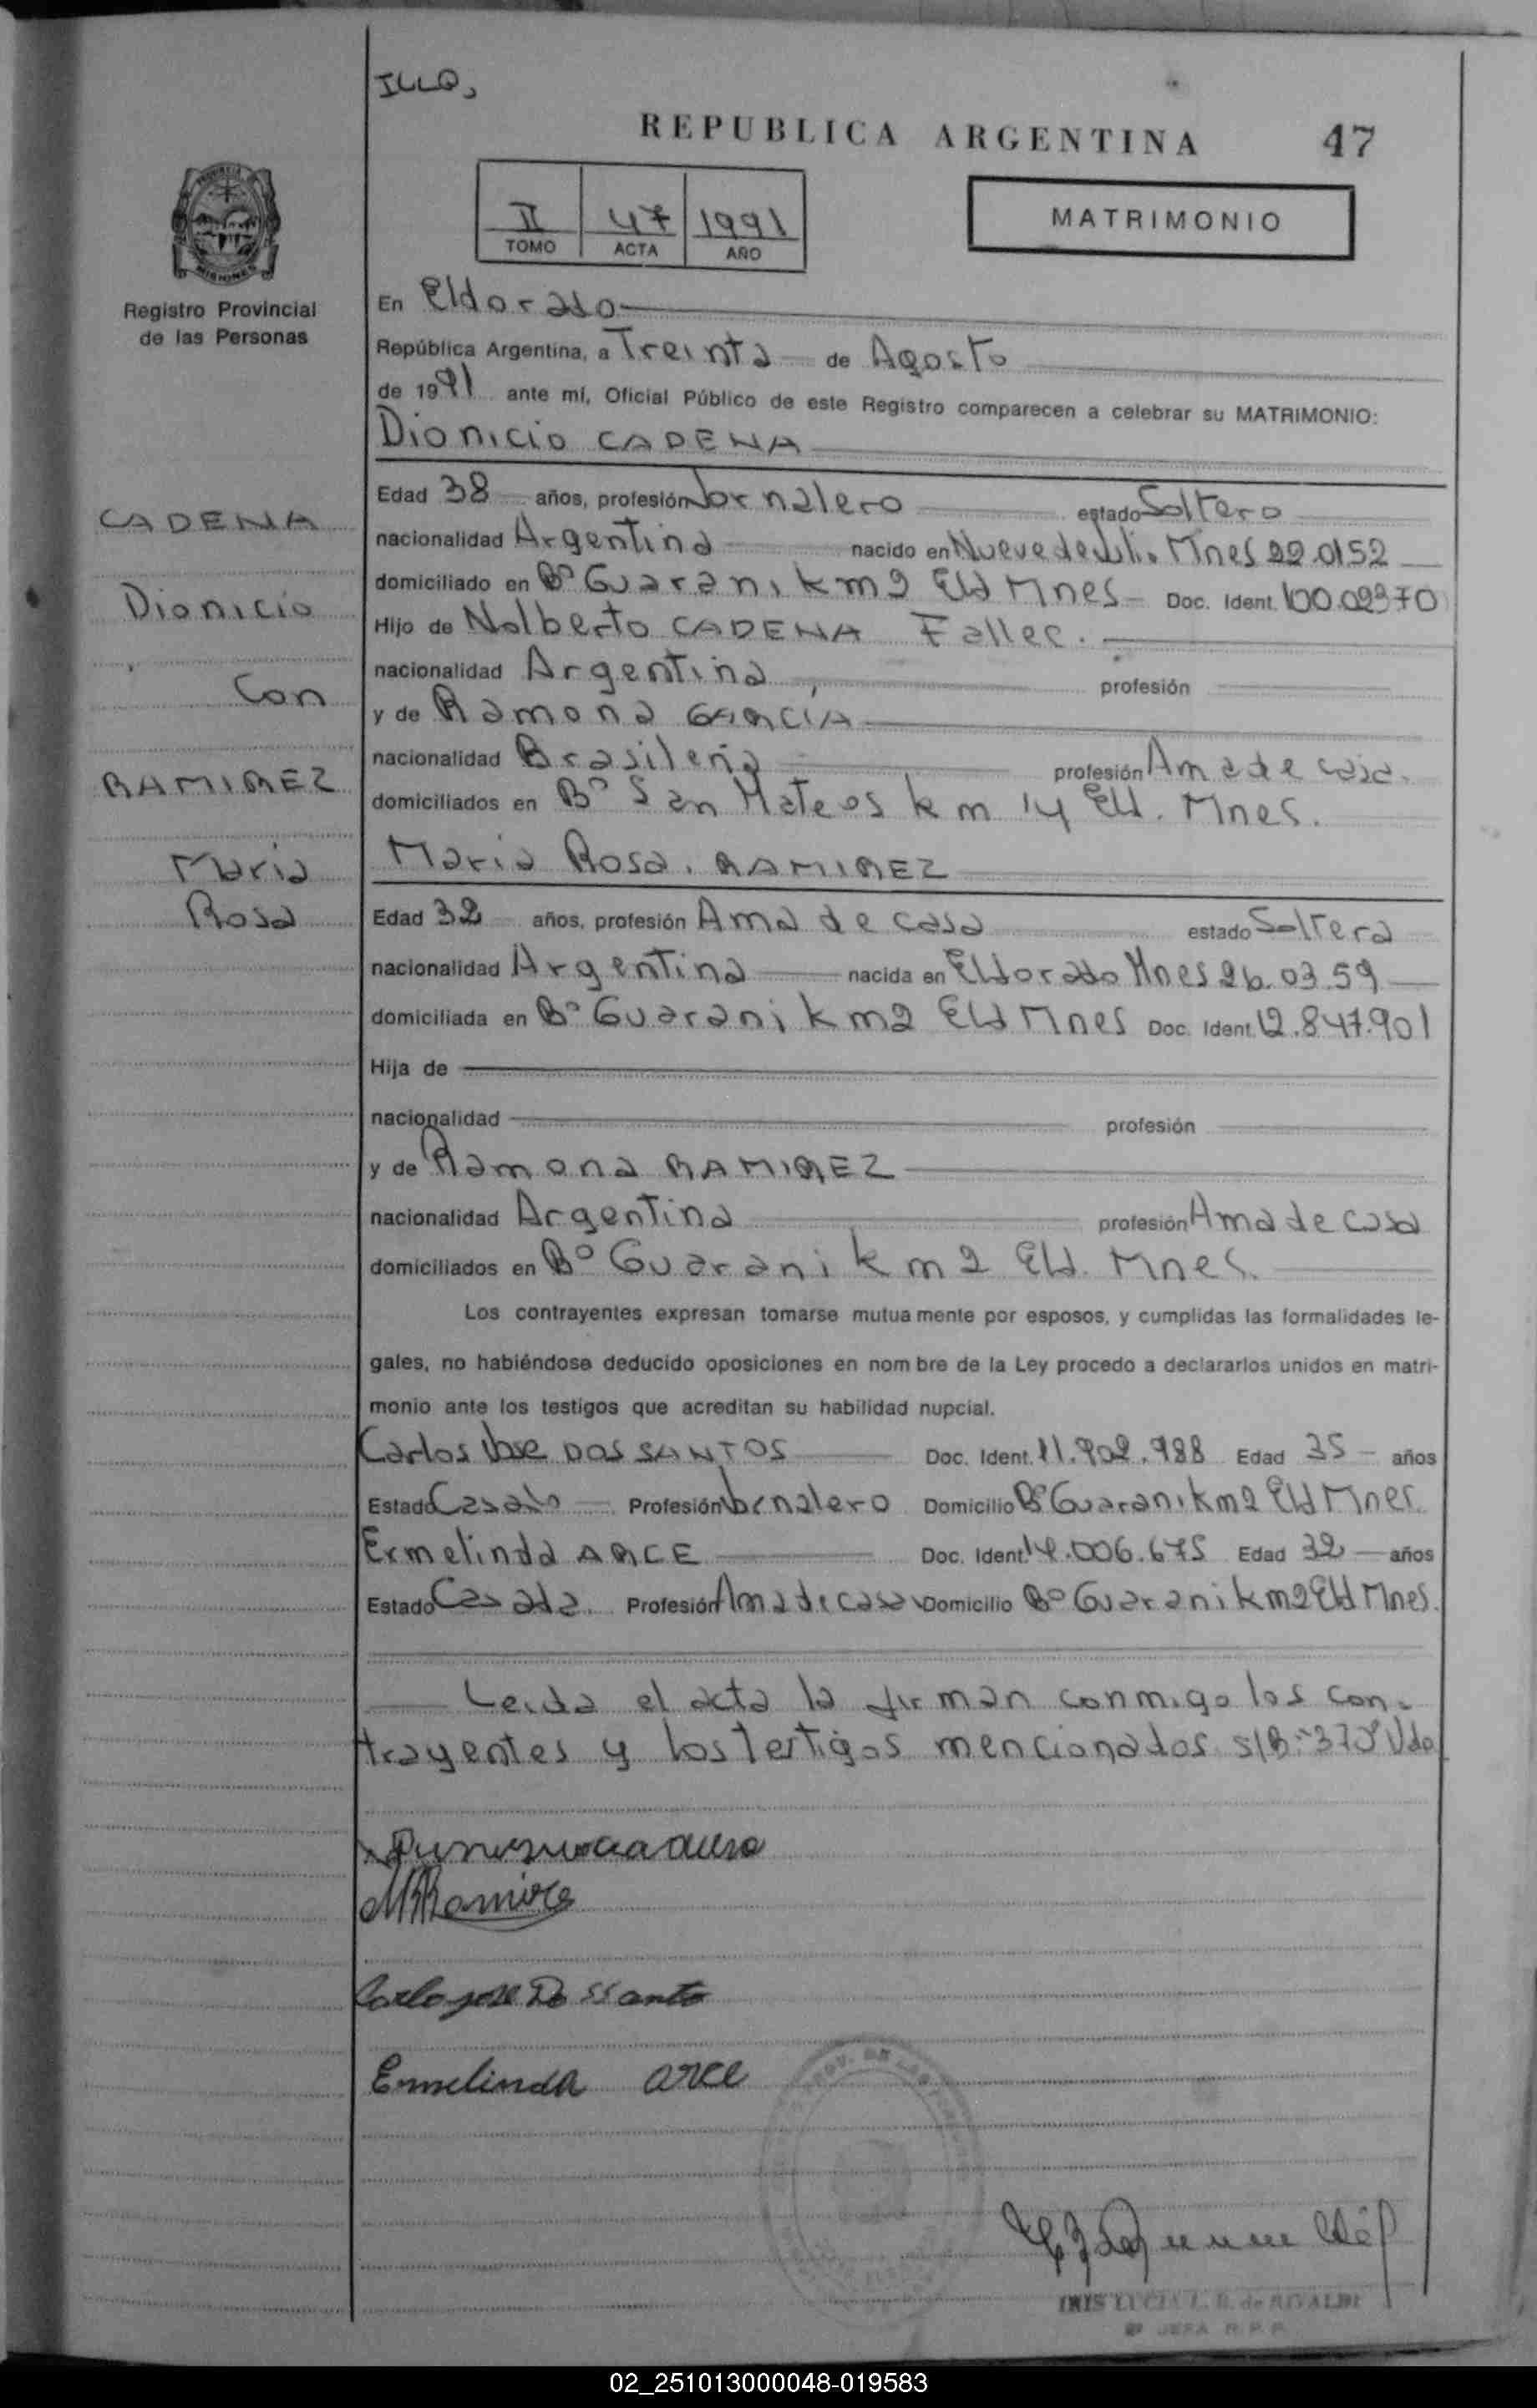 REPUBLICA ARGENTINA
47
PROVINCIA
MISIONES
Registro Provincial
de las Personas
II 47 1991
TOMO ACTA AÑO
MATRIMONIO
En Eldorado
República Argentina, a Treinta de Agosto
de 1991 ante mí, Oficial Público de este Registro comparecen a celebrar su MATRIMONIO:
Dionicio CADENA
CADENA
Dionicio
Con
RAMIREZ
Maria
Rosa
Edad 38 años, profesión Jornalero estado Soltero
nacionalidad Argentina nacido en Nueve de Julio Mnes 22.0152
domiciliado en Bº Guarani km 2 Eld Mnes Doc. Ident. 10002370
Hijo de Nolberto CADENA Fallec.
nacionalidad Argentina profesión
y de Ramona GARCIA
nacionalidad Brasileña profesión Ama de casa.
domiciliados en Bº San Mateos km 14 Eld. Mnes.
Maria Rosa. RAMIREZ
Edad 32 años, profesión Ama de casa estado Soltera
nacionalidad Argentina nacida en Eldorado Mnes 26.03.59
domiciliada en Bº Guarani km2 Eld Mnes Doc. Ident. 12.847.901
Hija de
nacionalidad profesión
y de Ramona RAMIREZ
nacionalidad Argentina profesión Ama de casa
domiciliados en Bº Guarani km 2 Eld. Mnes.
Los contrayentes expresan tomarse mutua mente por esposos, y cumplidas las formalidades le-
gales, no habiéndose deducido oposiciones en nom bre de la Ley procedo a declararlos unidos en matri-
monio ante los testigos que acreditan su habilidad nupcial.
Carlos Jose DOS SANTOS Doc. Ident. 11.902.988 Edad 35 años
Estado Casado Profesión Jornalero Domicilio Bº Guarani km2 Eld Mnes
Ermelinda ARCE Doc. Ident. 14.006.675 Edad 32 años
Estado Casada. Profesión Ama de casa Domicilio Bº Guarani km2 Eld Mnes.
Leida el acta la firman conmigo los con-
trayentes y los testigos mencionados s/B: 37
MRRamire
Carlo jose Do SSanto
Ermelinda arce
IRIS LUCIA L. B. de RIVALDI
JEFA R. P. P.
02_251013000048-019583